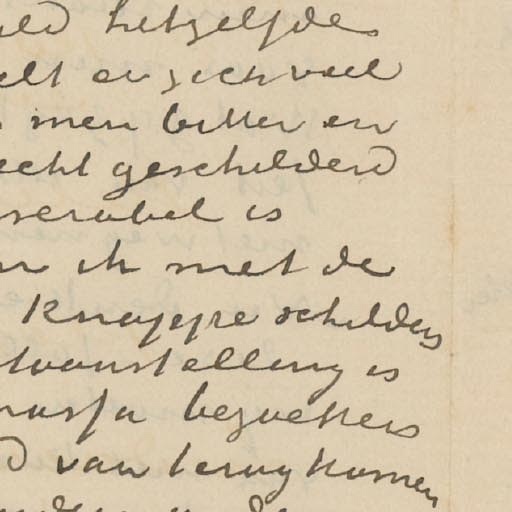 hetzelfde
er zich veel
men better en
echt geschilderd
serabel is
ik met de
knappe schilders
toonstelling is
bezoekers
van terug komen